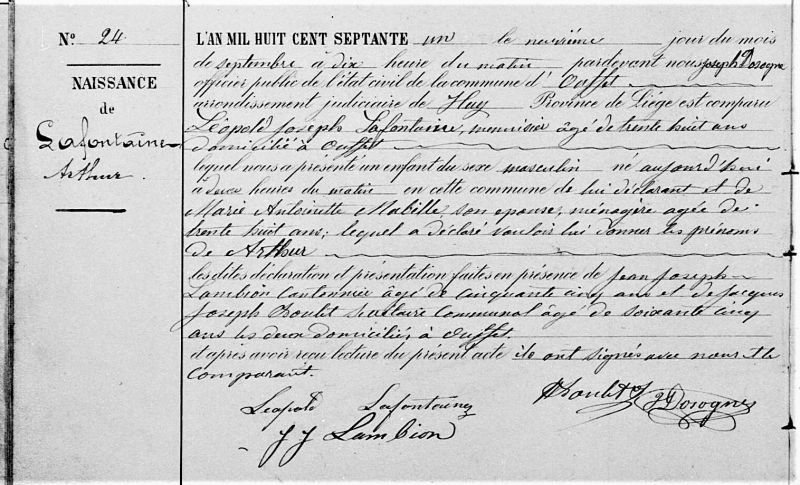 N° 24
NAISSANCE
de
Lafontaine
Arthur.
L'AN MIL HUIT CENT SEPTANTE un le neuvième jour du mois
de septembre à dix heure du matin pardevant nous Joseph Dosogne
officier public de l'état civil de la commune d' Ouffet
arrondissement judiciaire de Huy Province de Liége est comparu
Léopold Joseph Lafontaine, menuisier âgé de trente huit ans
domicilié à Ouffet
lequel nous a présenté un enfant du sexe masculin né aujourd'hui
à heures du matin en cette commune de lui déclarant et de
Marie Antoinette Mabille, son epouse, ménagère agée de
trente huit ans; lequel a déclaré vouloir lui donner les prénoms
de Arthur
les dites déclaration et présentation faites en présence de Jean Joseph
Lambion cantonnier âgé de cinquante cinq ans et de Jacques
Joseph communal âgé de soixante cinq
ans les deux domiciliés à Ouffet.
et après avoir recu lecture du présent acte ils ont signés avec nous et le
comparant.
Léopold Lafontaine
J Dosogne
J J Lambion